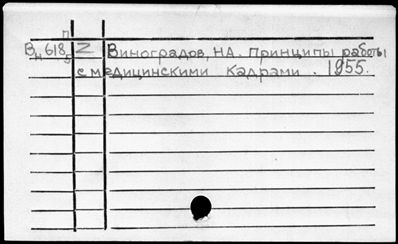 П
Вн618 2 Виноградов, НА. Принципы работы
5 с медицинскими кадрами. 1955.